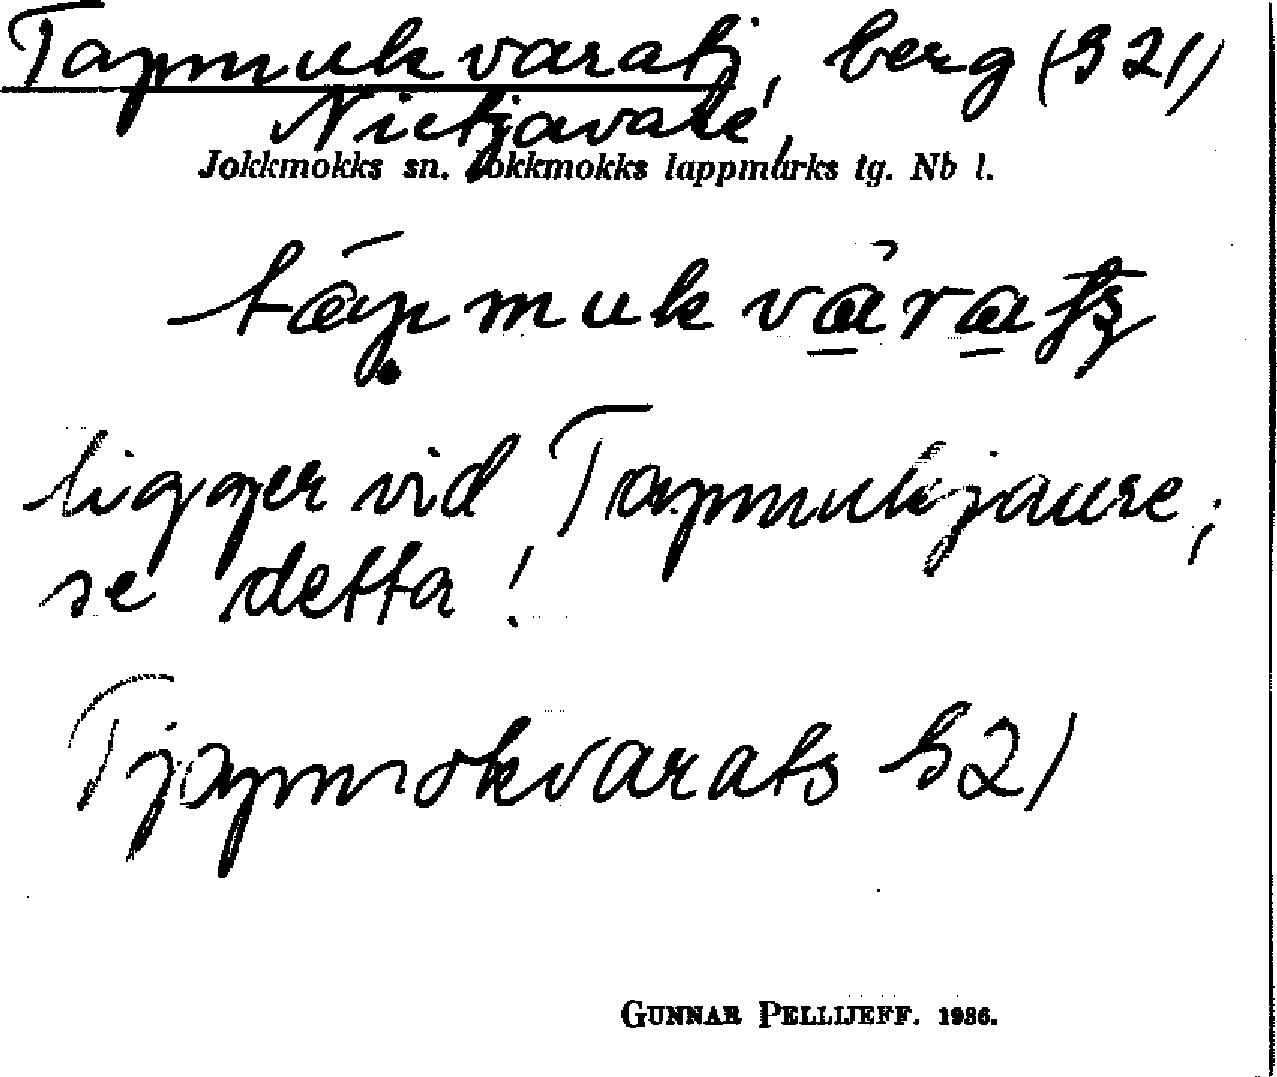 Tapmukvaratj, berg (S 21)
Nietjavare,
Jokkmokks sn. Jokkmokks lappmarks tg. Nb l.
ligger vid Tapmukjaure,
se detta!
Tjapmokvarats S 21
GUNNAR PELLIJEFF. 1986.